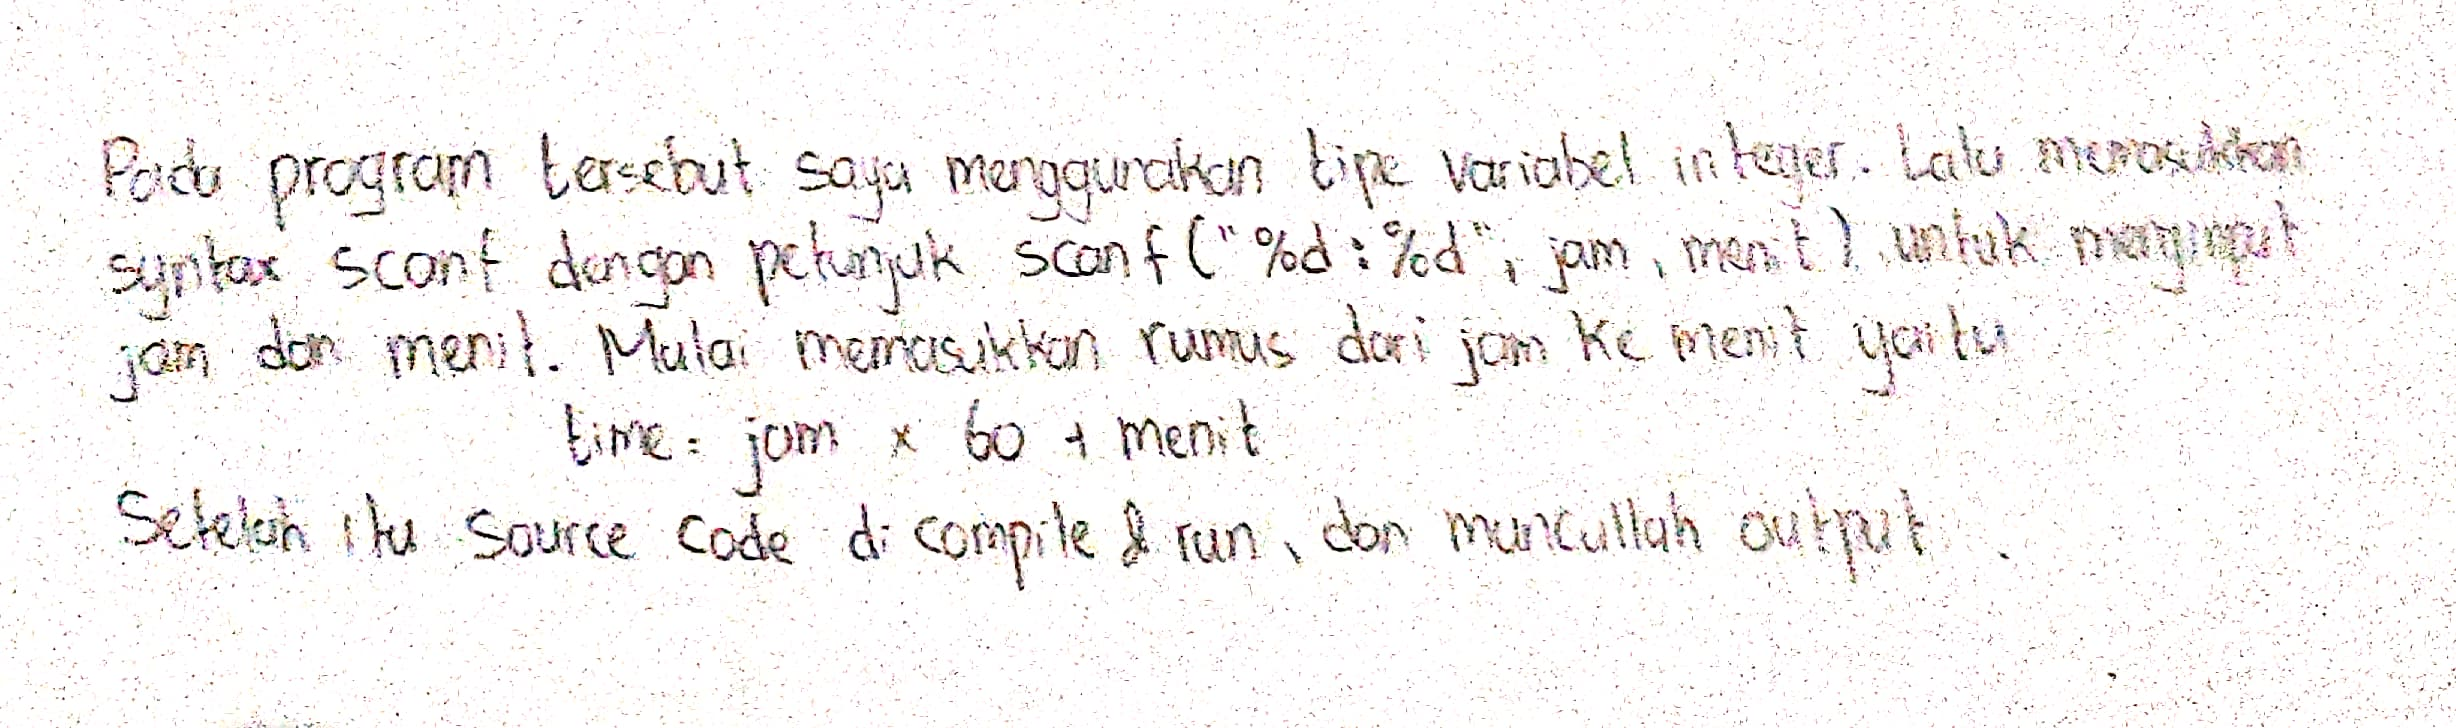 Pada program tersebut saya menggunakan tipe variabel integer. Lalu memasukkan
syntax scanf dengan petunjuk scanf ("%d:%d", jam, menit) untuk menginput
jam dan menit. Mulai memasukkan rumus dari jam ke menit yaitu
time = jam x 60 + menit
Setelah itu source code di compile & run, dan muncullah output .